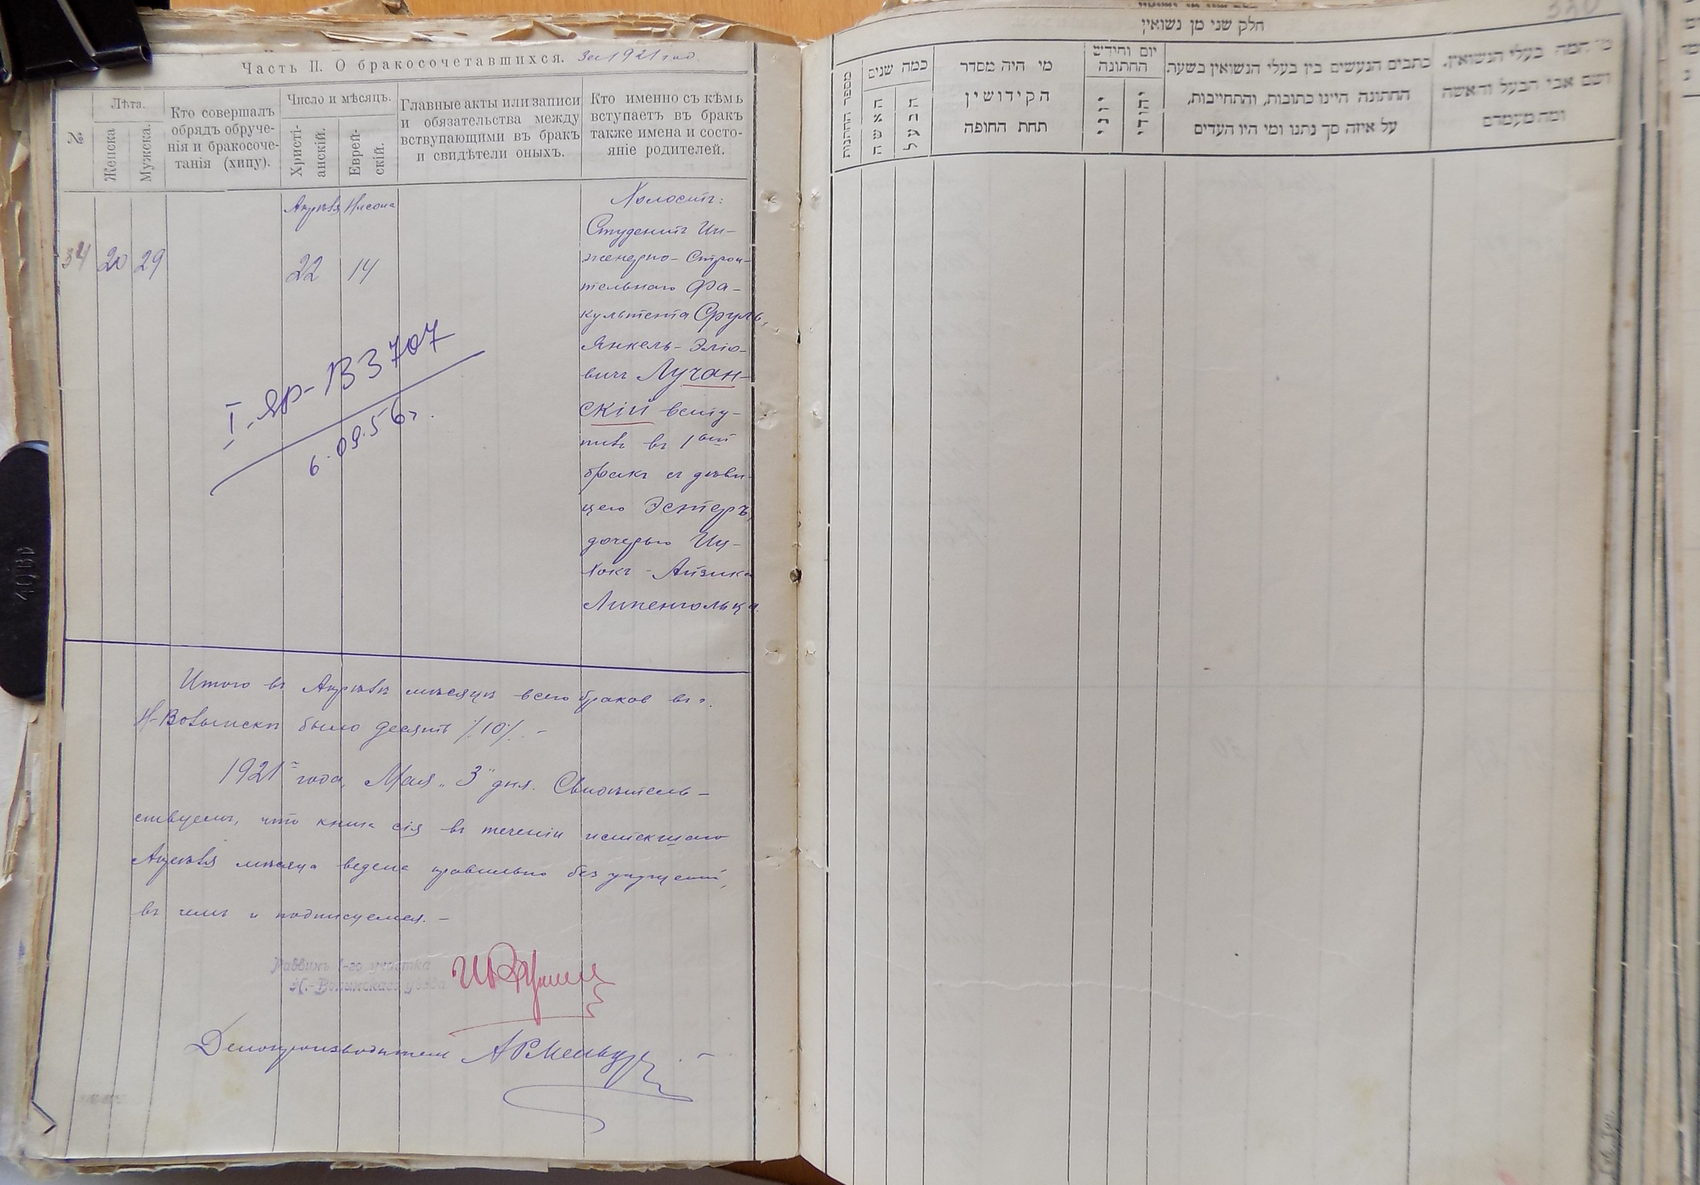 Часть II. О бракосочетавшихся. За 1921 год
№
Лѣта.
Женска.
Мужска.
Кто совершалъ
обрядъ обруче-
нія и бракосоче-
танія (хипу).
Число и мѣсяцъ.
Христі-
анскій.
Еврей-
скій.
Главные акты или записи
и обязательства между
вступающими въ бракъ
и свидѣтели оныхъ.
Кто именно съ кѣмъ
вступаетъ въ бракъ
также имена и состо-
яніе родителей.
34
20
29
Апрѣля
22
Нисона
14
Холостъ:
Студентъ Ин-
женерно-Строи-
тельнаго Фа-
культета Сруль,
Янкель-Эліо-
вичъ Лучан-
скій всту-
пилъ въ 1ый
бракъ съ дѣви-
цею Эстеръ,
дочерью Иц-
хокъ-Айзика
Липенгольца.
I-яр-ВЗ 707
6.09.56г.
Итого въ Апрѣлѣ мѣсяцѣ всего браков въ г.
Н-Волынскѣ было десять /.10/. -
1921 года, Мая „3" дня. Свидѣтель-
ствуемъ, что книга сія въ теченіи истекшаго
Апрѣля мѣсяца ведена правильно без упущеній,
въ чемъ и подписуемся. -
Раввинъ 1-го участка
Н.-Волынскаго уѣзда
Делопроизводитель
חלק שני מן נשואין
מספר החתונות
כמה שנים
האשה
הבעל
מי היה מסדר
הקידושין
תחת החופה
יום וחודש
החתונה
יוני
יהודי
כתבים הנעשים בין בעלי הנשואין בשעת
החתונה היינו כתובות, והתחייבות,
על איזה סך נתנו ומי היו העדים
מי המה בעלי הנשואין,
ושם אבי הבעל והאשה
ומה מעמדם